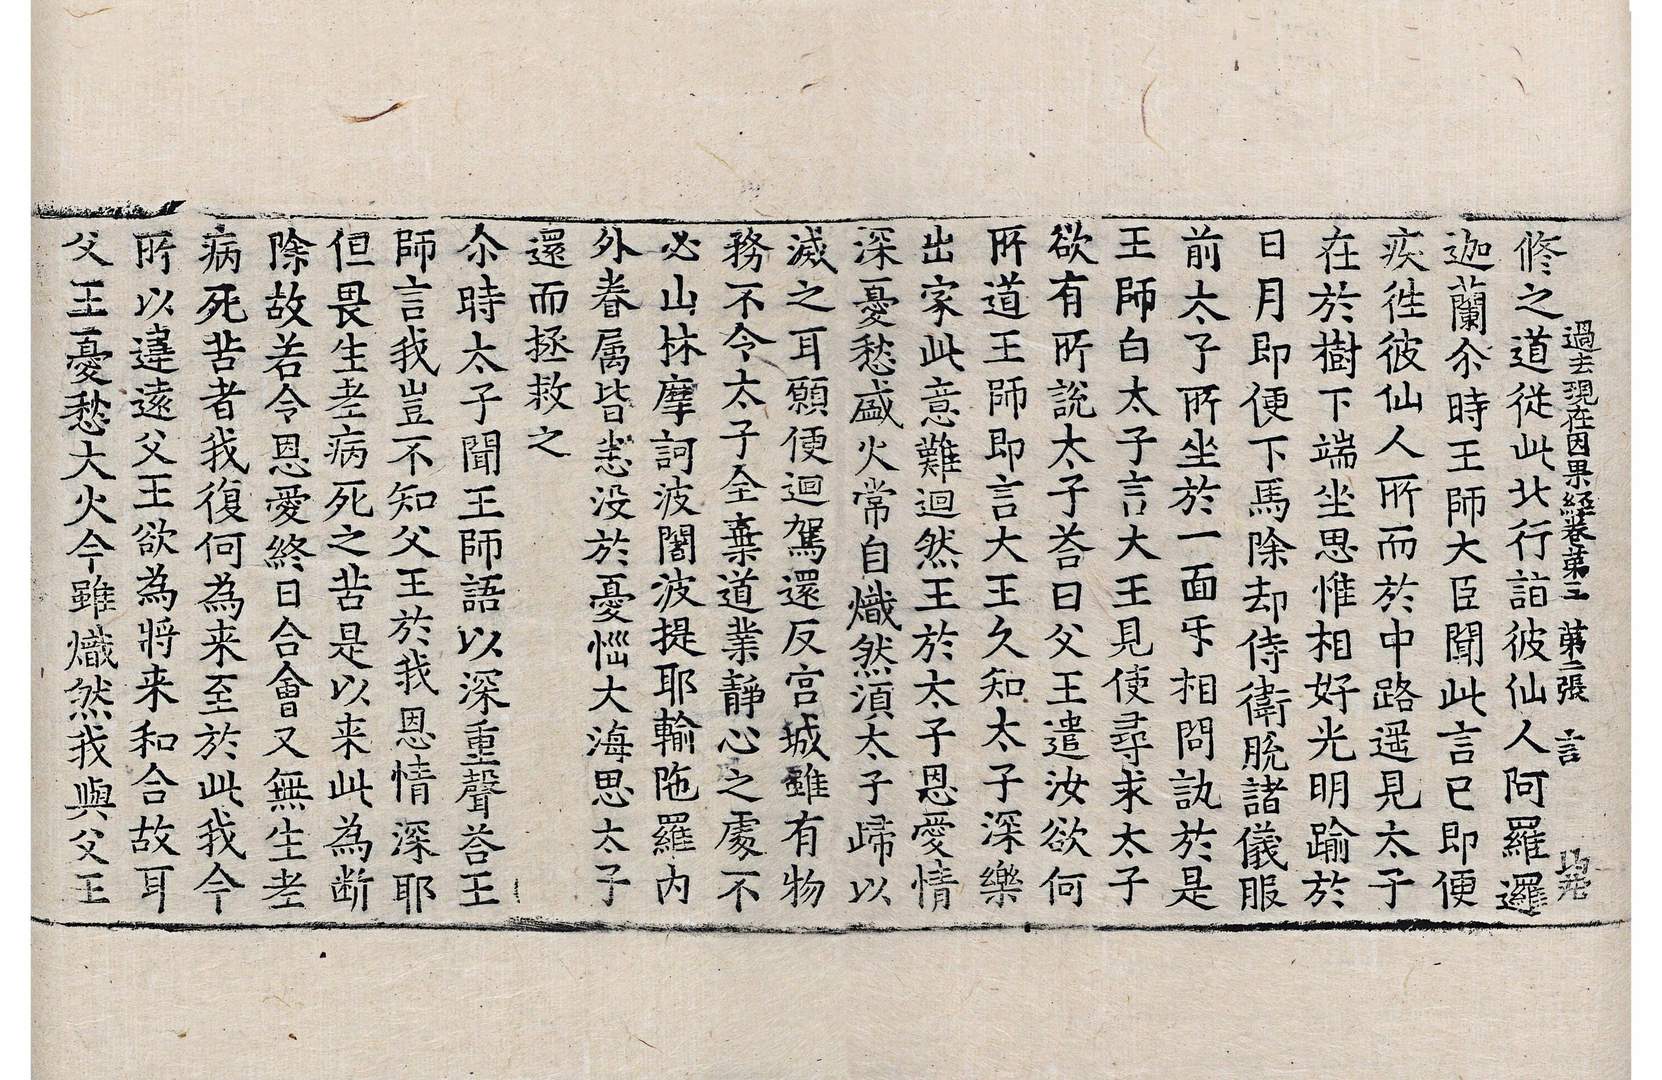 過去現在因果經卷第三 第二張 言
修之道從此北行詣彼仙人阿羅邏
迦蘭尒時王師大臣聞此言已即便
疾徃彼仙人所而於中路遥見太子
在於樹下端坐思惟相好光明踰於
日月即便下馬除却侍衛脫諸儀服
前太子所坐於一面乎相問訊於是
王師白太子言大王見使尋求太子
欲有所說太子荅曰父王遣汝欲何
所道王師即言大王久知太子深樂
出家此意難迴然王於太子恩愛情
深憂愁盛火常自熾然湏太子歸以
滅之耳願便迴駕還反宮城雖有物
務不令太子全棄道業靜心之處不
必山林摩訶波闍波提耶輸陁羅内
外眷属皆悉没於憂惱大海思太子
還而拯救之
尒時太子聞王師語以深重聲荅王
師言我豈不知父王於我恩情深耶
但畏生老病死之苦是以来此為断
除故若令恩愛終日合會又無生老
病死苦者我復何為来至於此我今
所以違遠父王欲為將来和合故耳
父王憂愁大火今雖熾然我與父王